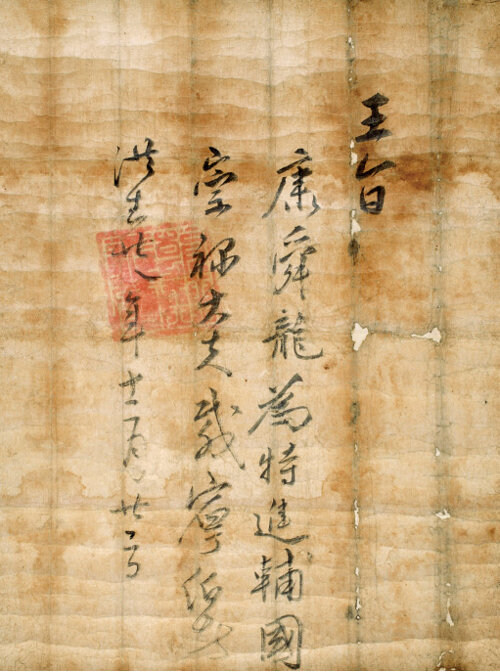 王旨
康舜龍為特進輔國
崇祿大夫載寧伯者
洪武廿八年十二月廿一日